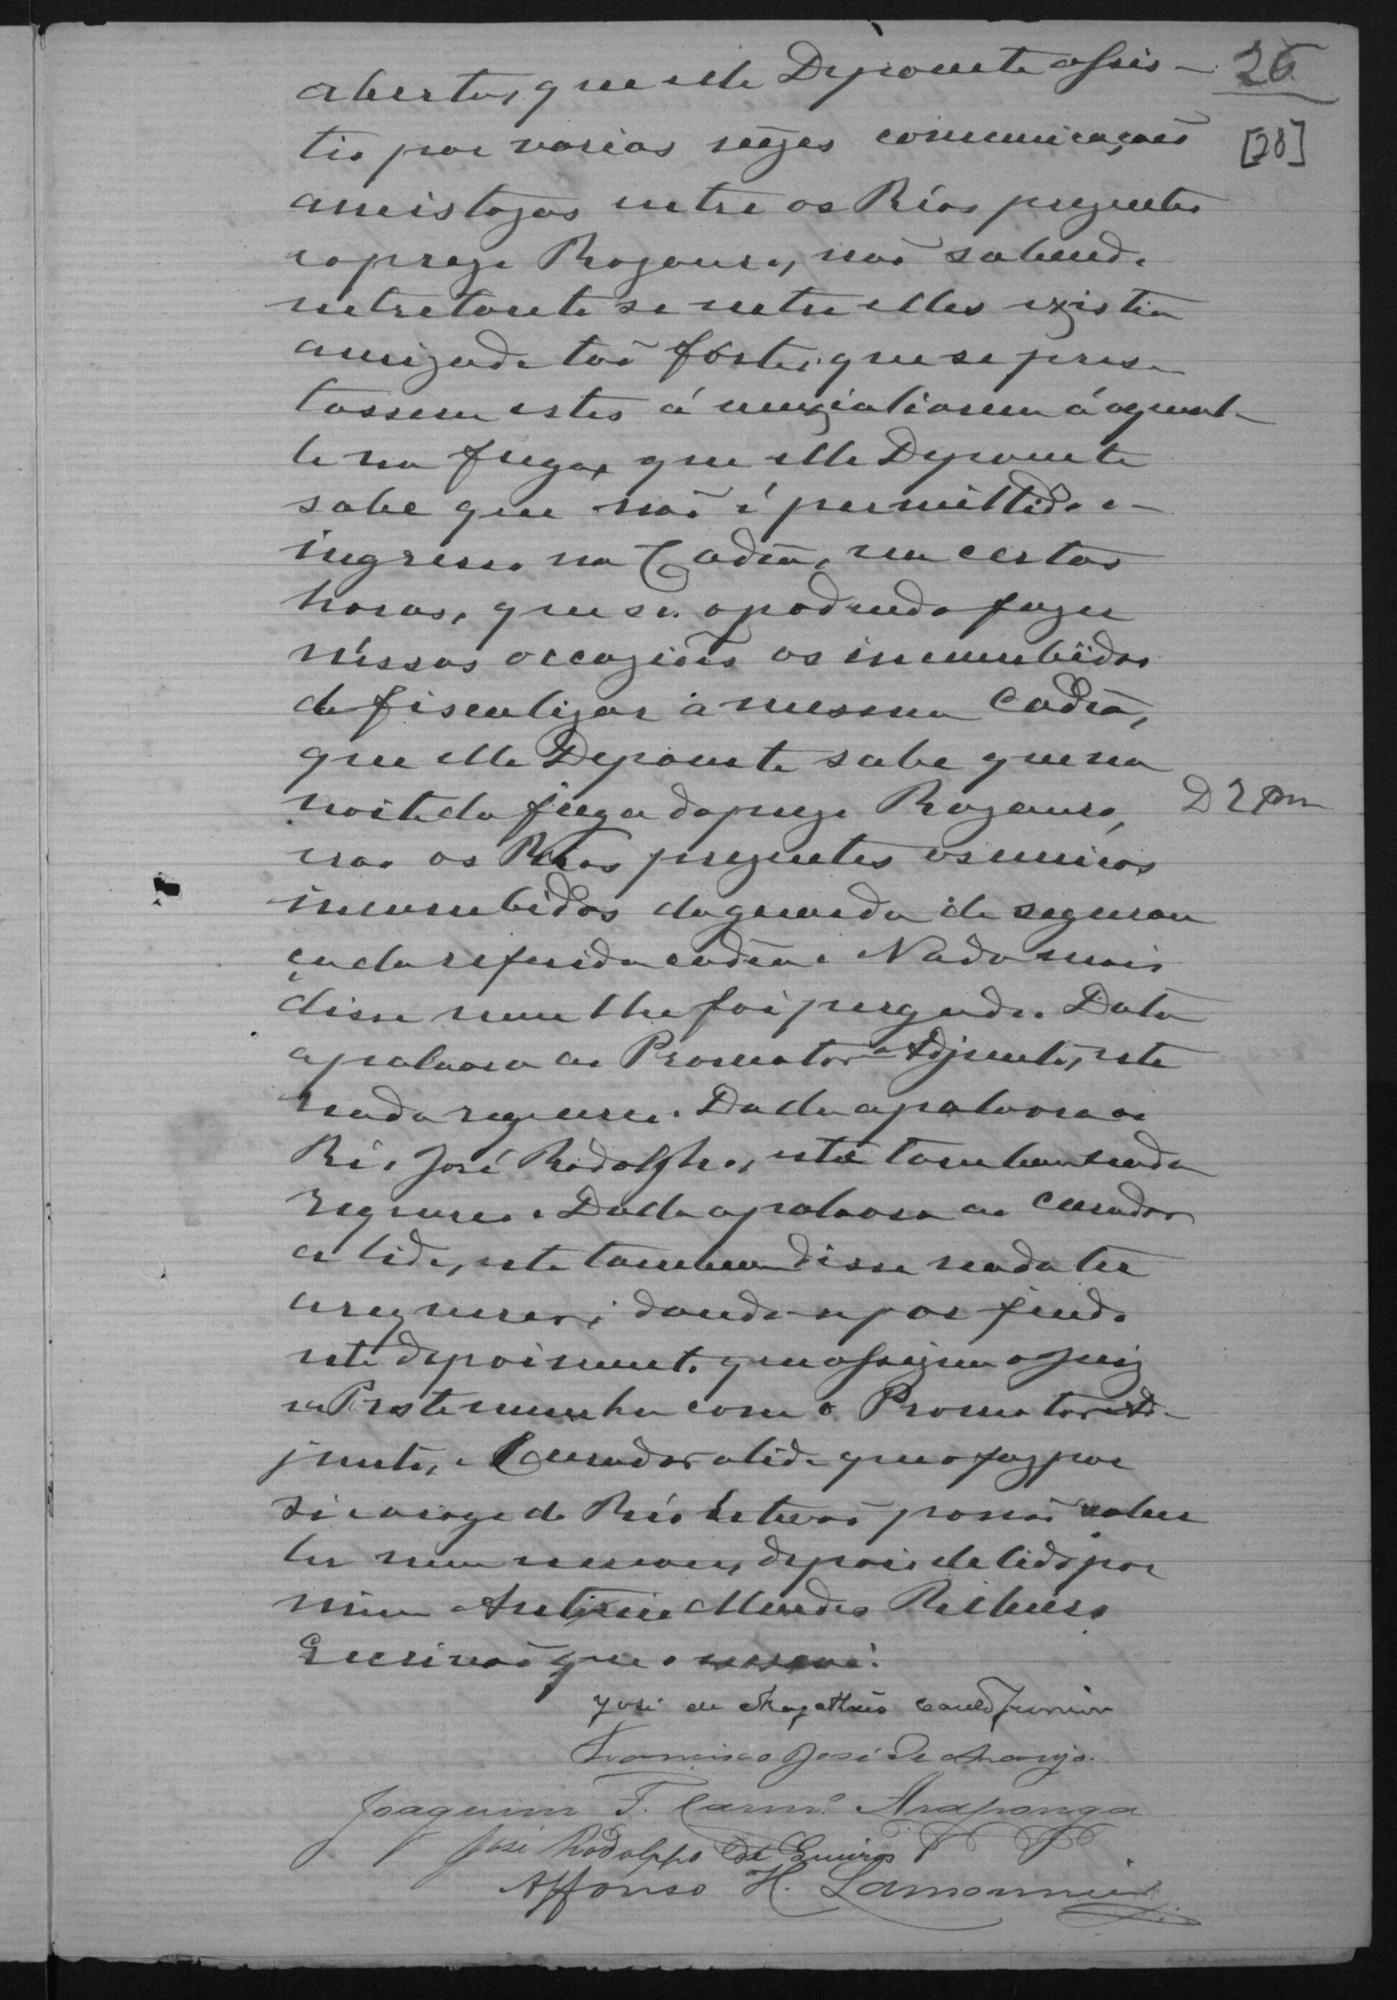 26
[28]
aberta, que elle Deponente assis-
tio por varias vezes comunicações
amistozas entre os Réos prezentes
e o prezo Rozauro, não sabendo
entretanto se entre elles existia
amizade tão forte, que se pres-
tassem estes á auxialiarem á aquel-
le na fuga, que elle Deponente
sabe que não é permittido o
ingresso na Cadêa, em certas
horas, que só o podendo fazer
néssas occaziões os incumbidos
de fiscalizar a mesma Cadêa,
que elle Deponente sabe que na
noite da fuga do prezo Rozauro,
D 2 pm
erão os Réos prezentes os unicos
incumbidos da guarda e de seguran
ça da referida cadêa. Nada mais
disse nem lhe foi pergdo. Data
a palavra ao Promotor Adjunto, este
nada requereu. Dada a palavra ao
Réo José Rodolpho, este tambem nada
requereu. Dada a palavra ao Curador
a lide, este tambem disse nada ter
a requerer; dando-se por findo
este depoimento que assigna o Juiz
e a testemunha com o Promotor Ad-
junto, e Curador a lide que o faz por
si e a rogo do Réo Estevão por não saber
ler nem escrever, depois de lido por
mim Antonio Mendes Ribeiro
Escrivão que o escrevi.
José de Magalhães Junior
Francisco José de Araujo.
Joaquim F. Carnro. Araponga
José Rodolpho de
Affonso H. Lamounier